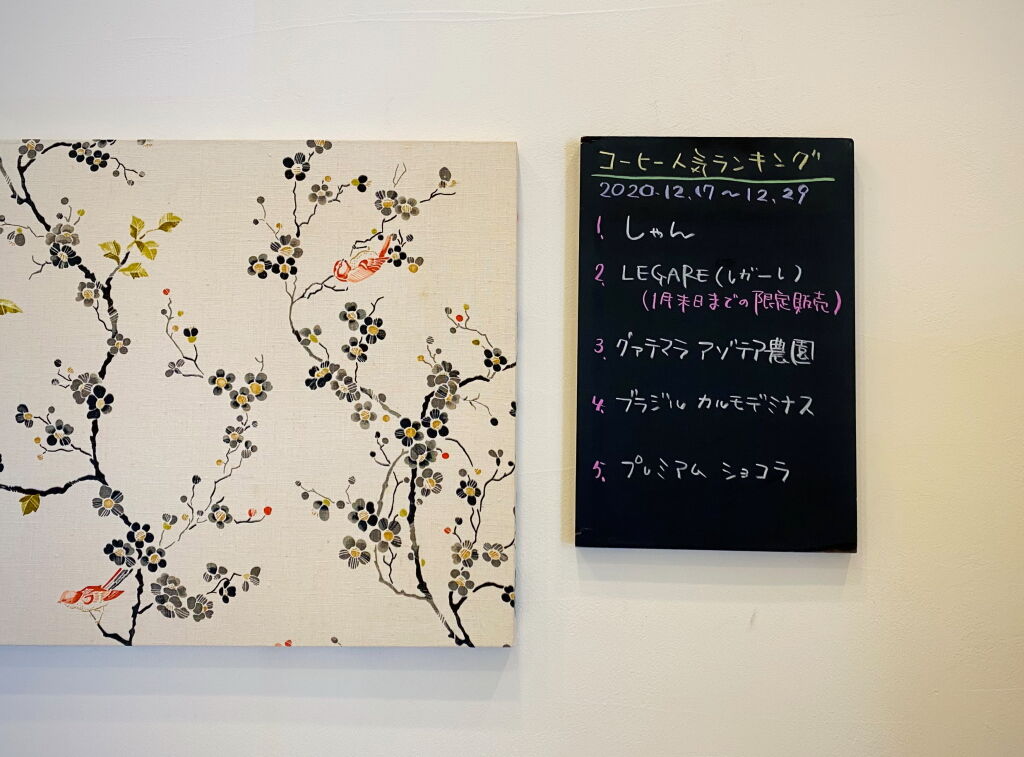 コーヒー人気ランキング
2020.12.17～12.29
1. しゃん
2. LEGARE(レガーレ)
(1月末日までの限定販売)
3. グァテマラ アゾテア農園
4. ブラジル カルモデミナス
5. プレミアム ショコラ